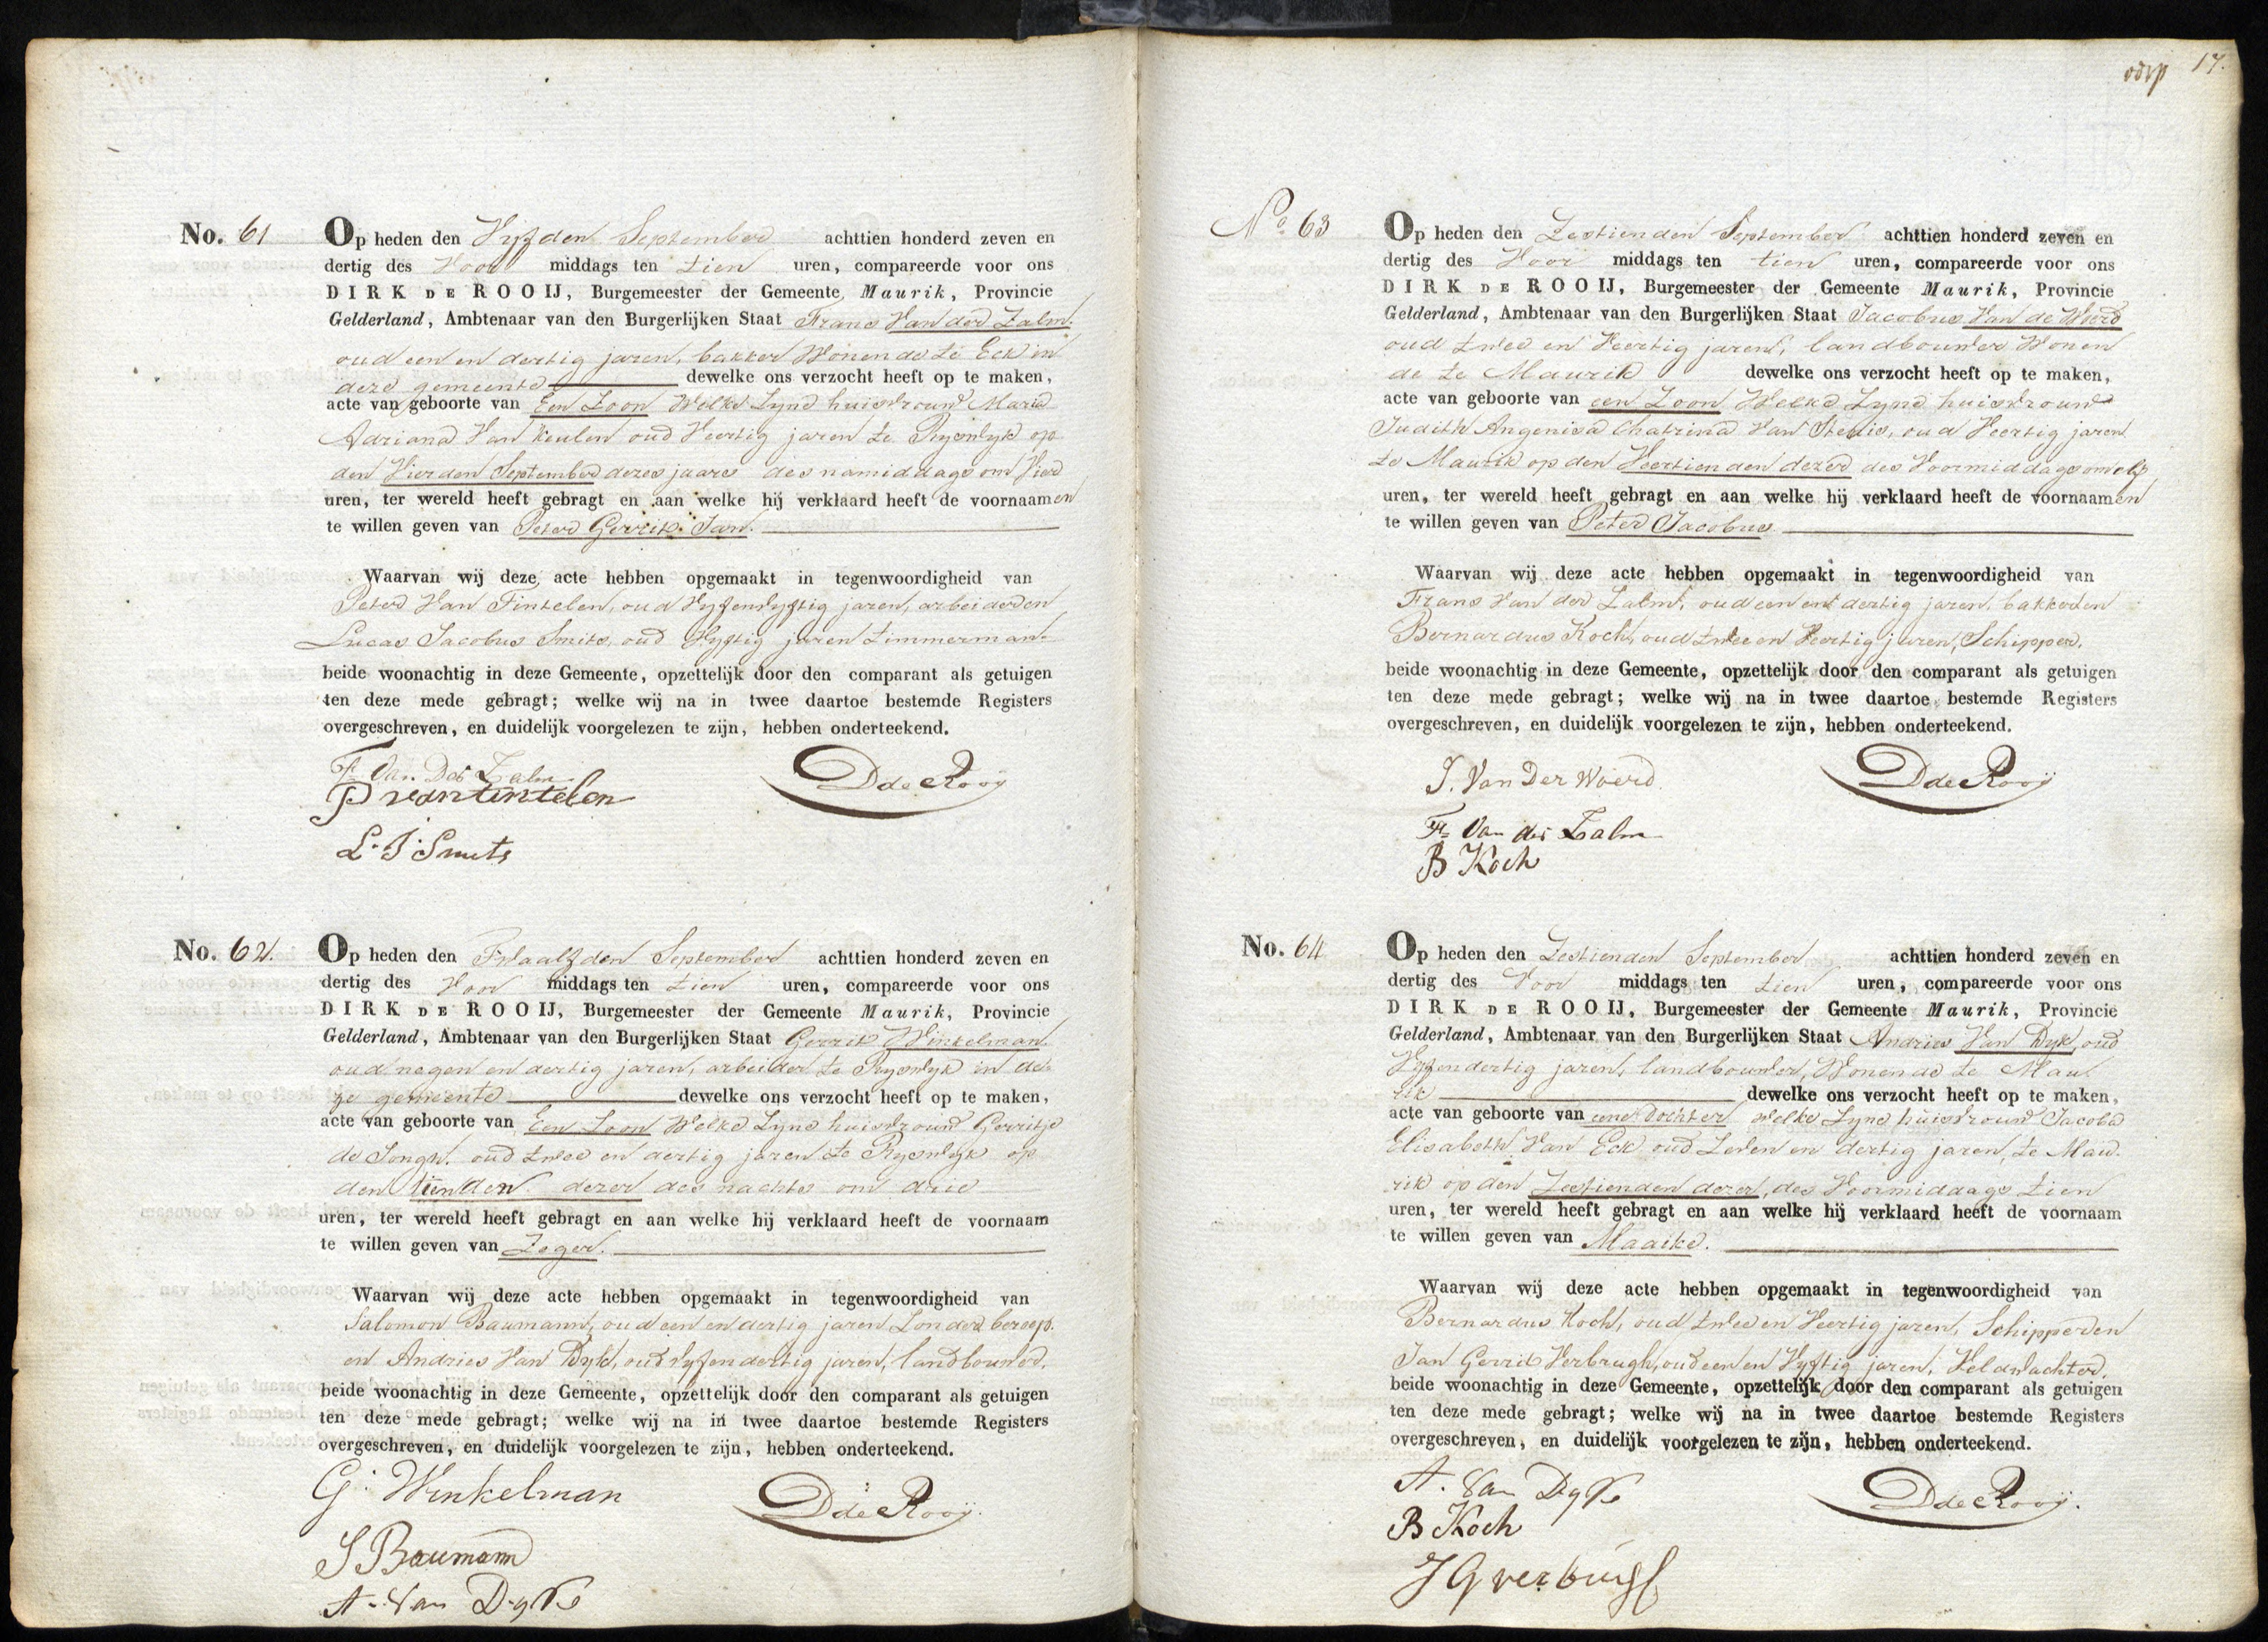 No. 61
Op heden den Vyfden September achttien honderd zeven en
dertig des Voor middags ten tien uren, compareerde voor ons
DIRK DE ROOIJ, Burgemeester der Gemeente Maurik, Provincie
Gelderland, Ambtenaar van den Burgerlijken Staat Frans Van der Zalm.
oud een en dertig jaren, bakker Wonende te Eck in
deze gemeente dewelke ons verzocht heeft op te maken,
acte van geboorte van Een Zoon Welke Zyne huisvrouw Maria
Adriana Van Keulen oud Veertig jaren te Ryswyk op
den Vierden September dezes jaars des namiddags om Vier
uren, ter wereld heeft gebragt en aan welke hij verklaard heeft de voornaamen
te willen geven van Peter Gerrit Jan.
Waarvan wij deze acte hebben opgemaakt in tegenwoordigheid van
Peter Van Tintelen, oud Vyfenvyftig jaren, arbeider en
Lucas Jacobus Smits, oud Vyftig jaren timmerman
beide woonachtig in deze Gemeente, opzettelijk door den comparant als getuigen
ten deze mede gebragt; welke wij na in twee daartoe bestemde Registers
overgeschreven, en duidelijk voorgelezen te zijn, hebben onderteekend.
F Van Der Zalm
P van tintelen
D de Rooij
L. J. Smits
No. 62.
Op heden den Twaalfden September achttien honderd zeven en
dertig des Voor middags ten tien uren, compareerde voor ons
DIRK DE ROOIJ, Burgemeester der Gemeente Maurik, Provincie
Gelderland, Ambtenaar van den Burgerlijken Staat Gerrit Winkelman.
oud negen en dertig jaren, arbeider te Ryswyk in de-
ze gemeente dewelke ons verzocht heeft op te maken,
acte van geboorte van Een Zoon Welke Zyne huisvrouw Gerritje
de Jongh. oud twee en dertig jaren te Ryswyk op
den tienden dezer des nachts om drie
uren, ter wereld heeft gebragt en aan welke hij verklaard heeft de voornaam
te willen geven van Zeger.
Waarvan wij deze acte hebben opgemaakt in tegenwoordigheid van
Salomon Baumann, oud een en dertig jaren Zonder beroep.
en Andries Van Dyk, oud vyfendertig jaren, landbouwer.
beide woonachtig in deze Gemeente, opzettelijk door den comparant als getuigen
ten deze mede gebragt; welke wij na in twee daartoe bestemde Registers
overgeschreven, en duidelijk voorgelezen te zijn, hebben onderteekend.
G. Winkelman
D de Rooij.
S Baumann
A. Van Dyk
17.
No 63
Op heden den Zestienden September achttien honderd zeven en
dertig des Voor middags ten tien uren, compareerde voor ons
DIRK DE ROOIJ, Burgemeester der Gemeente Maurik, Provincie
Gelderland, Ambtenaar van den Burgerlijken Staat Jacobus Van de Woerd
oud twee en Veertig jaren, landbouwer Wonen
de te Maurik dewelke ons verzocht heeft op te maken,
acte van geboorte van een Zoon Welke Zyne huisvrouw
Judith Angenisa Chatrina Van oud Veertig jaren
te Maurik op den Veertienden dezer des Voormiddags om elf
uren, ter wereld heeft gebragt en aan welke hij verklaard heeft de voornaamen
te willen geven van Peter Jacobus
Waarvan wij deze acte hebben opgemaakt in tegenwoordigheid van
Frans Van der Zalm, oud een en dertig jaren, bakker en
Bernardus Koch, oud twee en Veertig jaren, Schipper.
beide woonachtig in deze Gemeente, opzettelijk door den comparant als getuigen
ten deze mede gebragt; welke wij na in twee daartoe bestemde Registers
overgeschreven, en duidelijk voorgelezen te zijn, hebben onderteekend.
J. Van Der Woerd
D de Rooij
F Van der Zalm
B Koch
No. 64
Op heden den Zestienden September achttien honderd zeven en
dertig des Voor middags ten tien uren, compareerde voor ons
DIRK DE ROOIJ, Burgemeester der Gemeente Maurik, Provincie
Gelderland, Ambtenaar van den Burgerlijken Staat Andries Van Dyk, oud
Vyfendertig jaren, landbouwer, Wonende te Mau-
rik dewelke ons verzocht heeft op te maken,
acte van geboorte van eene Dochter welke Zyne huisvrouw Jacoba
Elisabeth Van Eck oud Zeven en dertig jaren, te Mau-
rik op den Zestienden dezer, des Voormiddags tien
uren, ter wereld heeft gebragt en aan welke hij verklaard heeft de voornaam
te willen geven van Maaike.
Waarvan wij deze acte hebben opgemaakt in tegenwoordigheid van
Bernardus Koch, oud twee en Veertig jaren, Schipper en
Jan Gerrit Verbrugh, oud een en Vyftig jaren, Veldwachter.
beide woonachtig in deze Gemeente, opzettelijk door den comparant als getuigen
ten deze mede gebragt; welke wij na in twee daartoe bestemde Registers
overgeschreven, en duidelijk voorgelezen te zijn, hebben onderteekend.
A. Van Dyk
D de Rooij.
B Koch
J G verbrugh